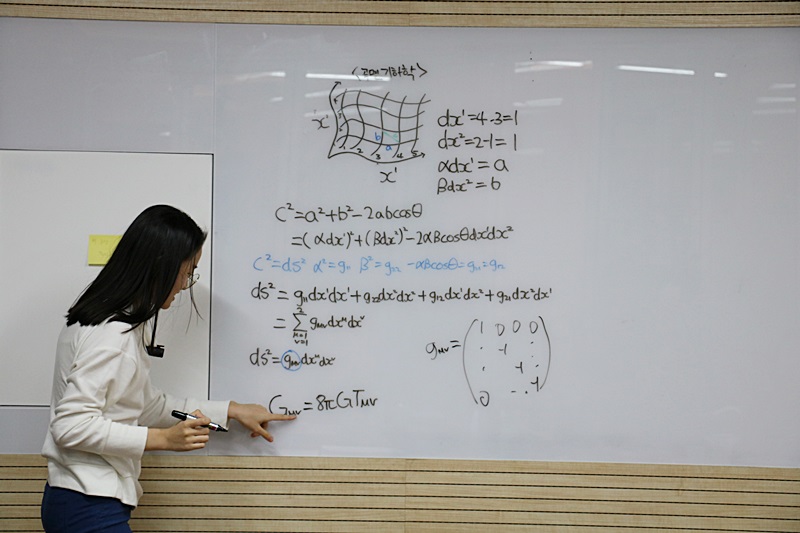 <공면기하학>
x'
1 2 3 4 5
b
a
x'
dx' = 4-3 = 1
dx² = 2-1 = 1
αdx' = a
βdx² = b
C² = a² + b² - 2abcosθ
= (αdx')² + (βdx²)² - 2αβcosθdx'dx²
C² = ds² α² = g₁₁ β² = g₂₂ -αβcosθ = g₂₁ = g₁₂
ds² = g₁₁dx'dx' + g₂₂dx²dx² + g₁₂dx'dx² + g₂₁dx²dx'
= Σ μ=1 ν=1 2 gμνdxᵘdxᵛ
ds² = gμνdxᵘdxᵛ
gμν = ( 1 0 0 0
-1
-1
0 -1 )
Gμν = 8πGTμν